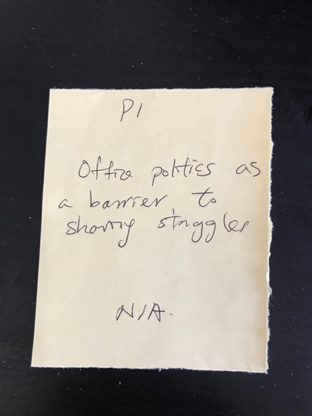 P1
Office politics as
a barrier to
sharing struggles
N/A.